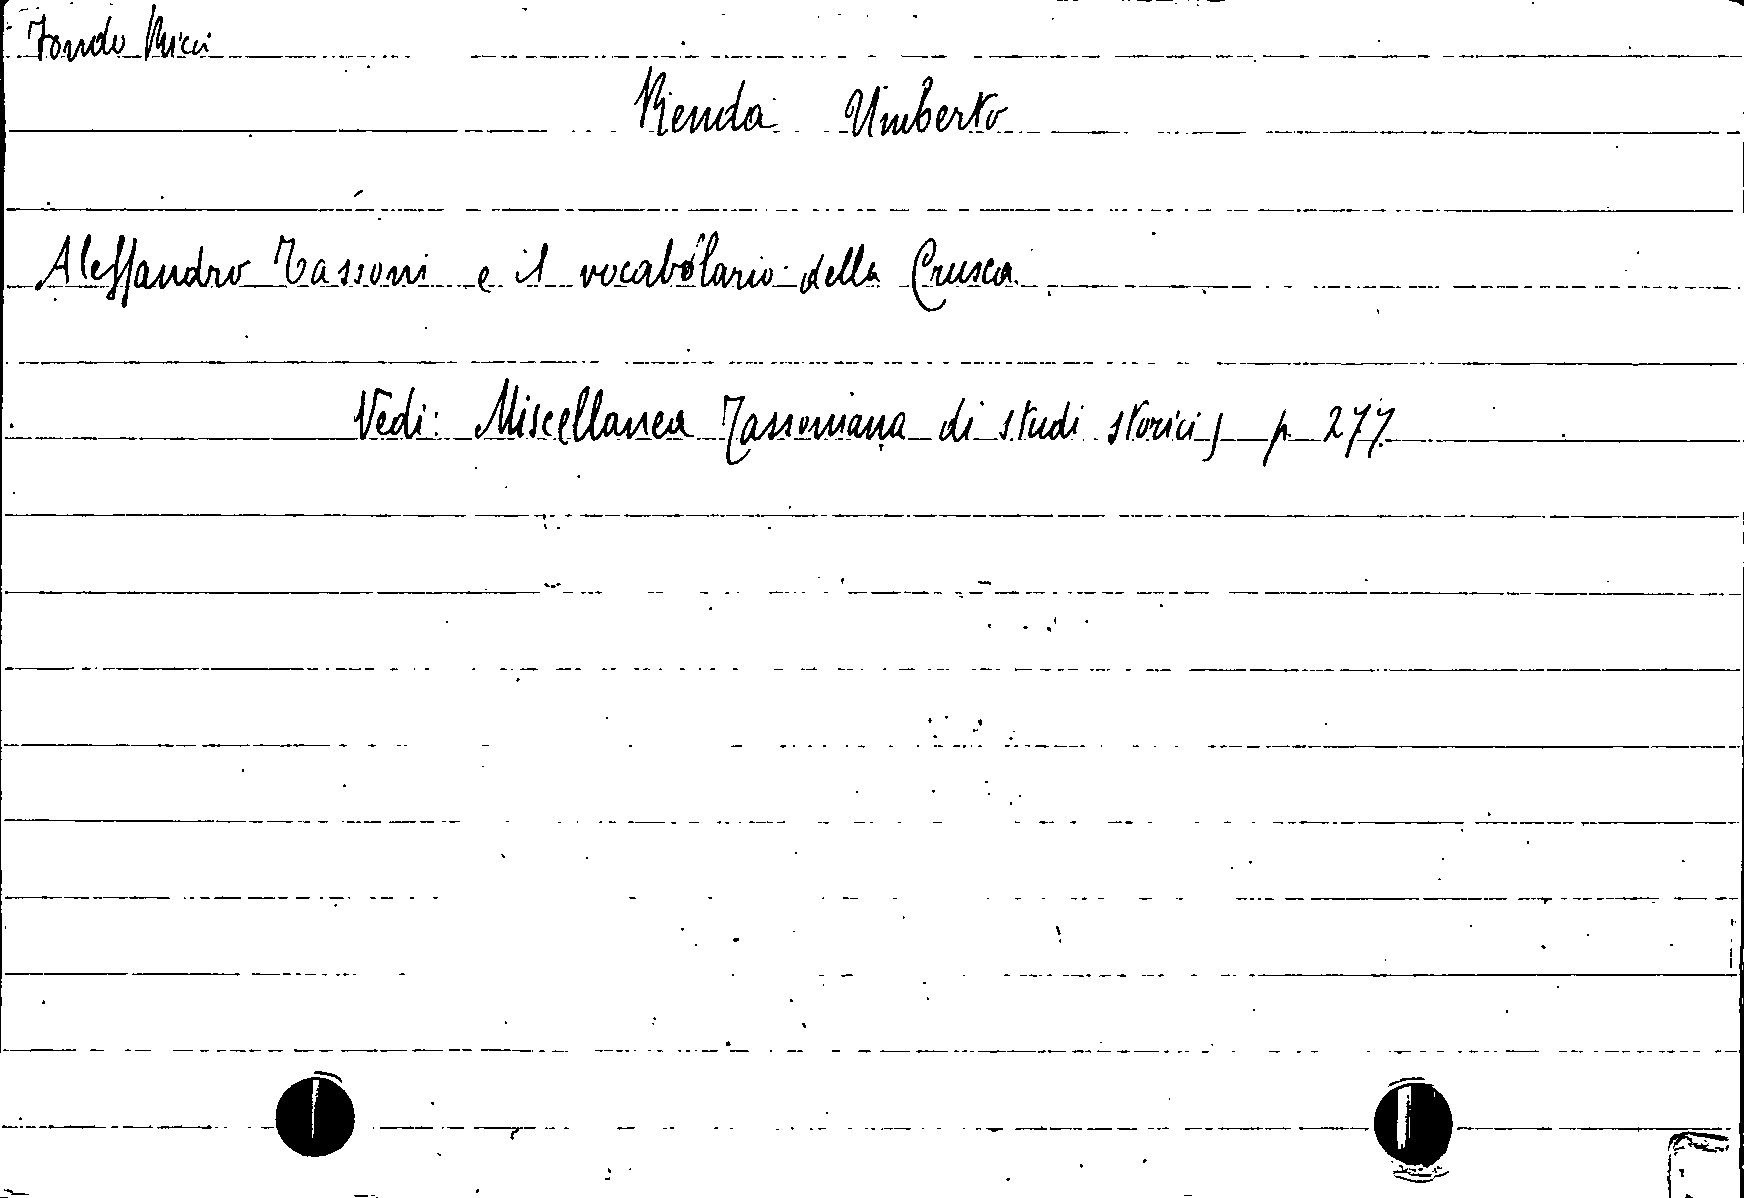 Fondo Ricci
Renda Umberto
Alessandro Tassoni e il vocabolario della Crusca.
Vedi: Miscellanea Tassoniana di studi storici, p. 277.